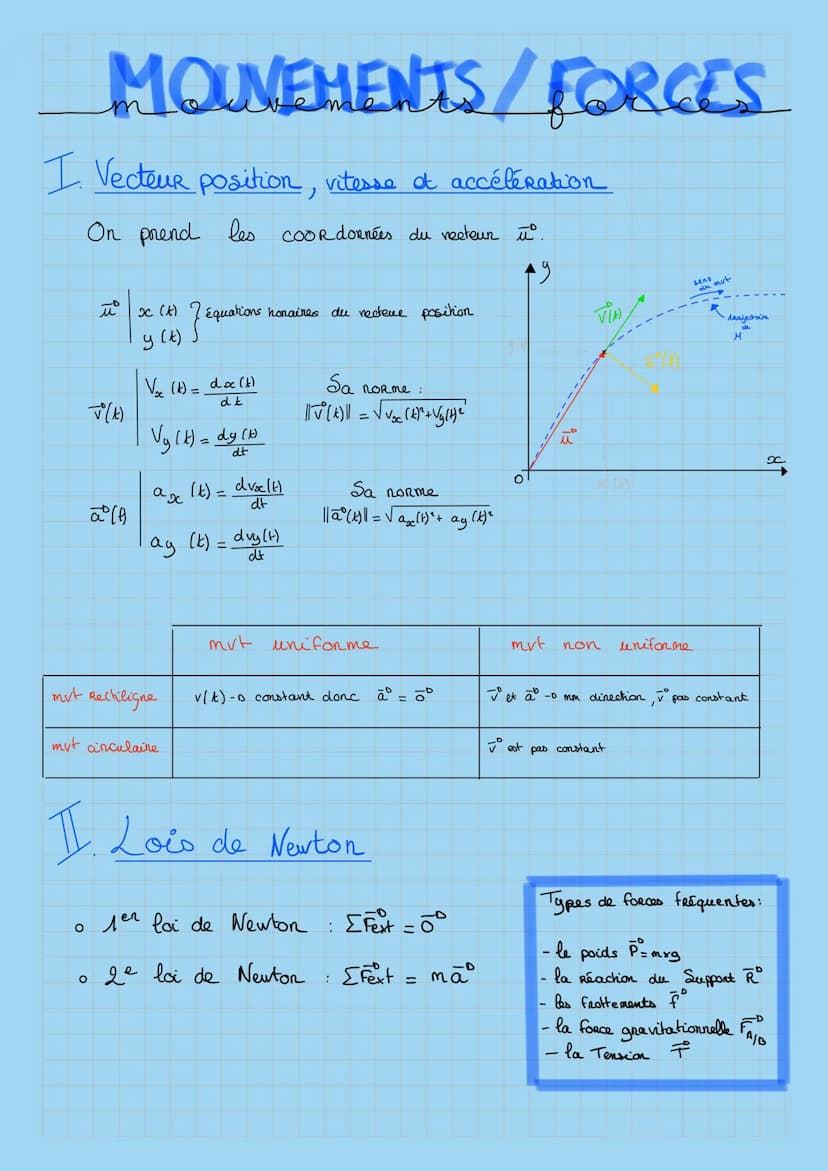 MOUVEMENTS/FORCES
mouvements forces
I. Vecteur position, vitesse et accélération
On prend les coordonnées du vecteur u⃗.
u⃗ | x(t) } équations horaires du vecteur position
y(t)
v⃗(t) | Vx(t) = dx(t)/dt
Vy(t) = dy(t)/dt
Sa norme :
||v⃗(t)|| = √(vx(t)²+Vy(t)²)
a⃗(t) | ax(t) = dvx(t)/dt
ay(t) = dvy(t)/dt
Sa norme
||a⃗(t)|| = √(ax(t)²+ ay(t)²)
y
sens du mvt
v⃗(t)
trajectoire de M
a⃗(t)
y(t)
u⃗
x
O
x(t)
mvt uniforme
mvt non uniforme
mvt Rectiligne
v(t) → constant donc a⃗ = 0⃗
v⃗ et a⃗ → mm direction, v⃗ pas constant
mvt circulaire
v⃗ est pas constant
II. Lois de Newton
o 1er loi de Newton : ΣF⃗ext = 0⃗
o 2e loi de Newton : ΣF⃗ext = ma⃗
Types de forces fréquentes :
- le poids P⃗ = mxg
- la Réaction du Support R⃗
- les frottements f⃗
- la force gravitationnelle F⃗A/B
- la Tension T⃗